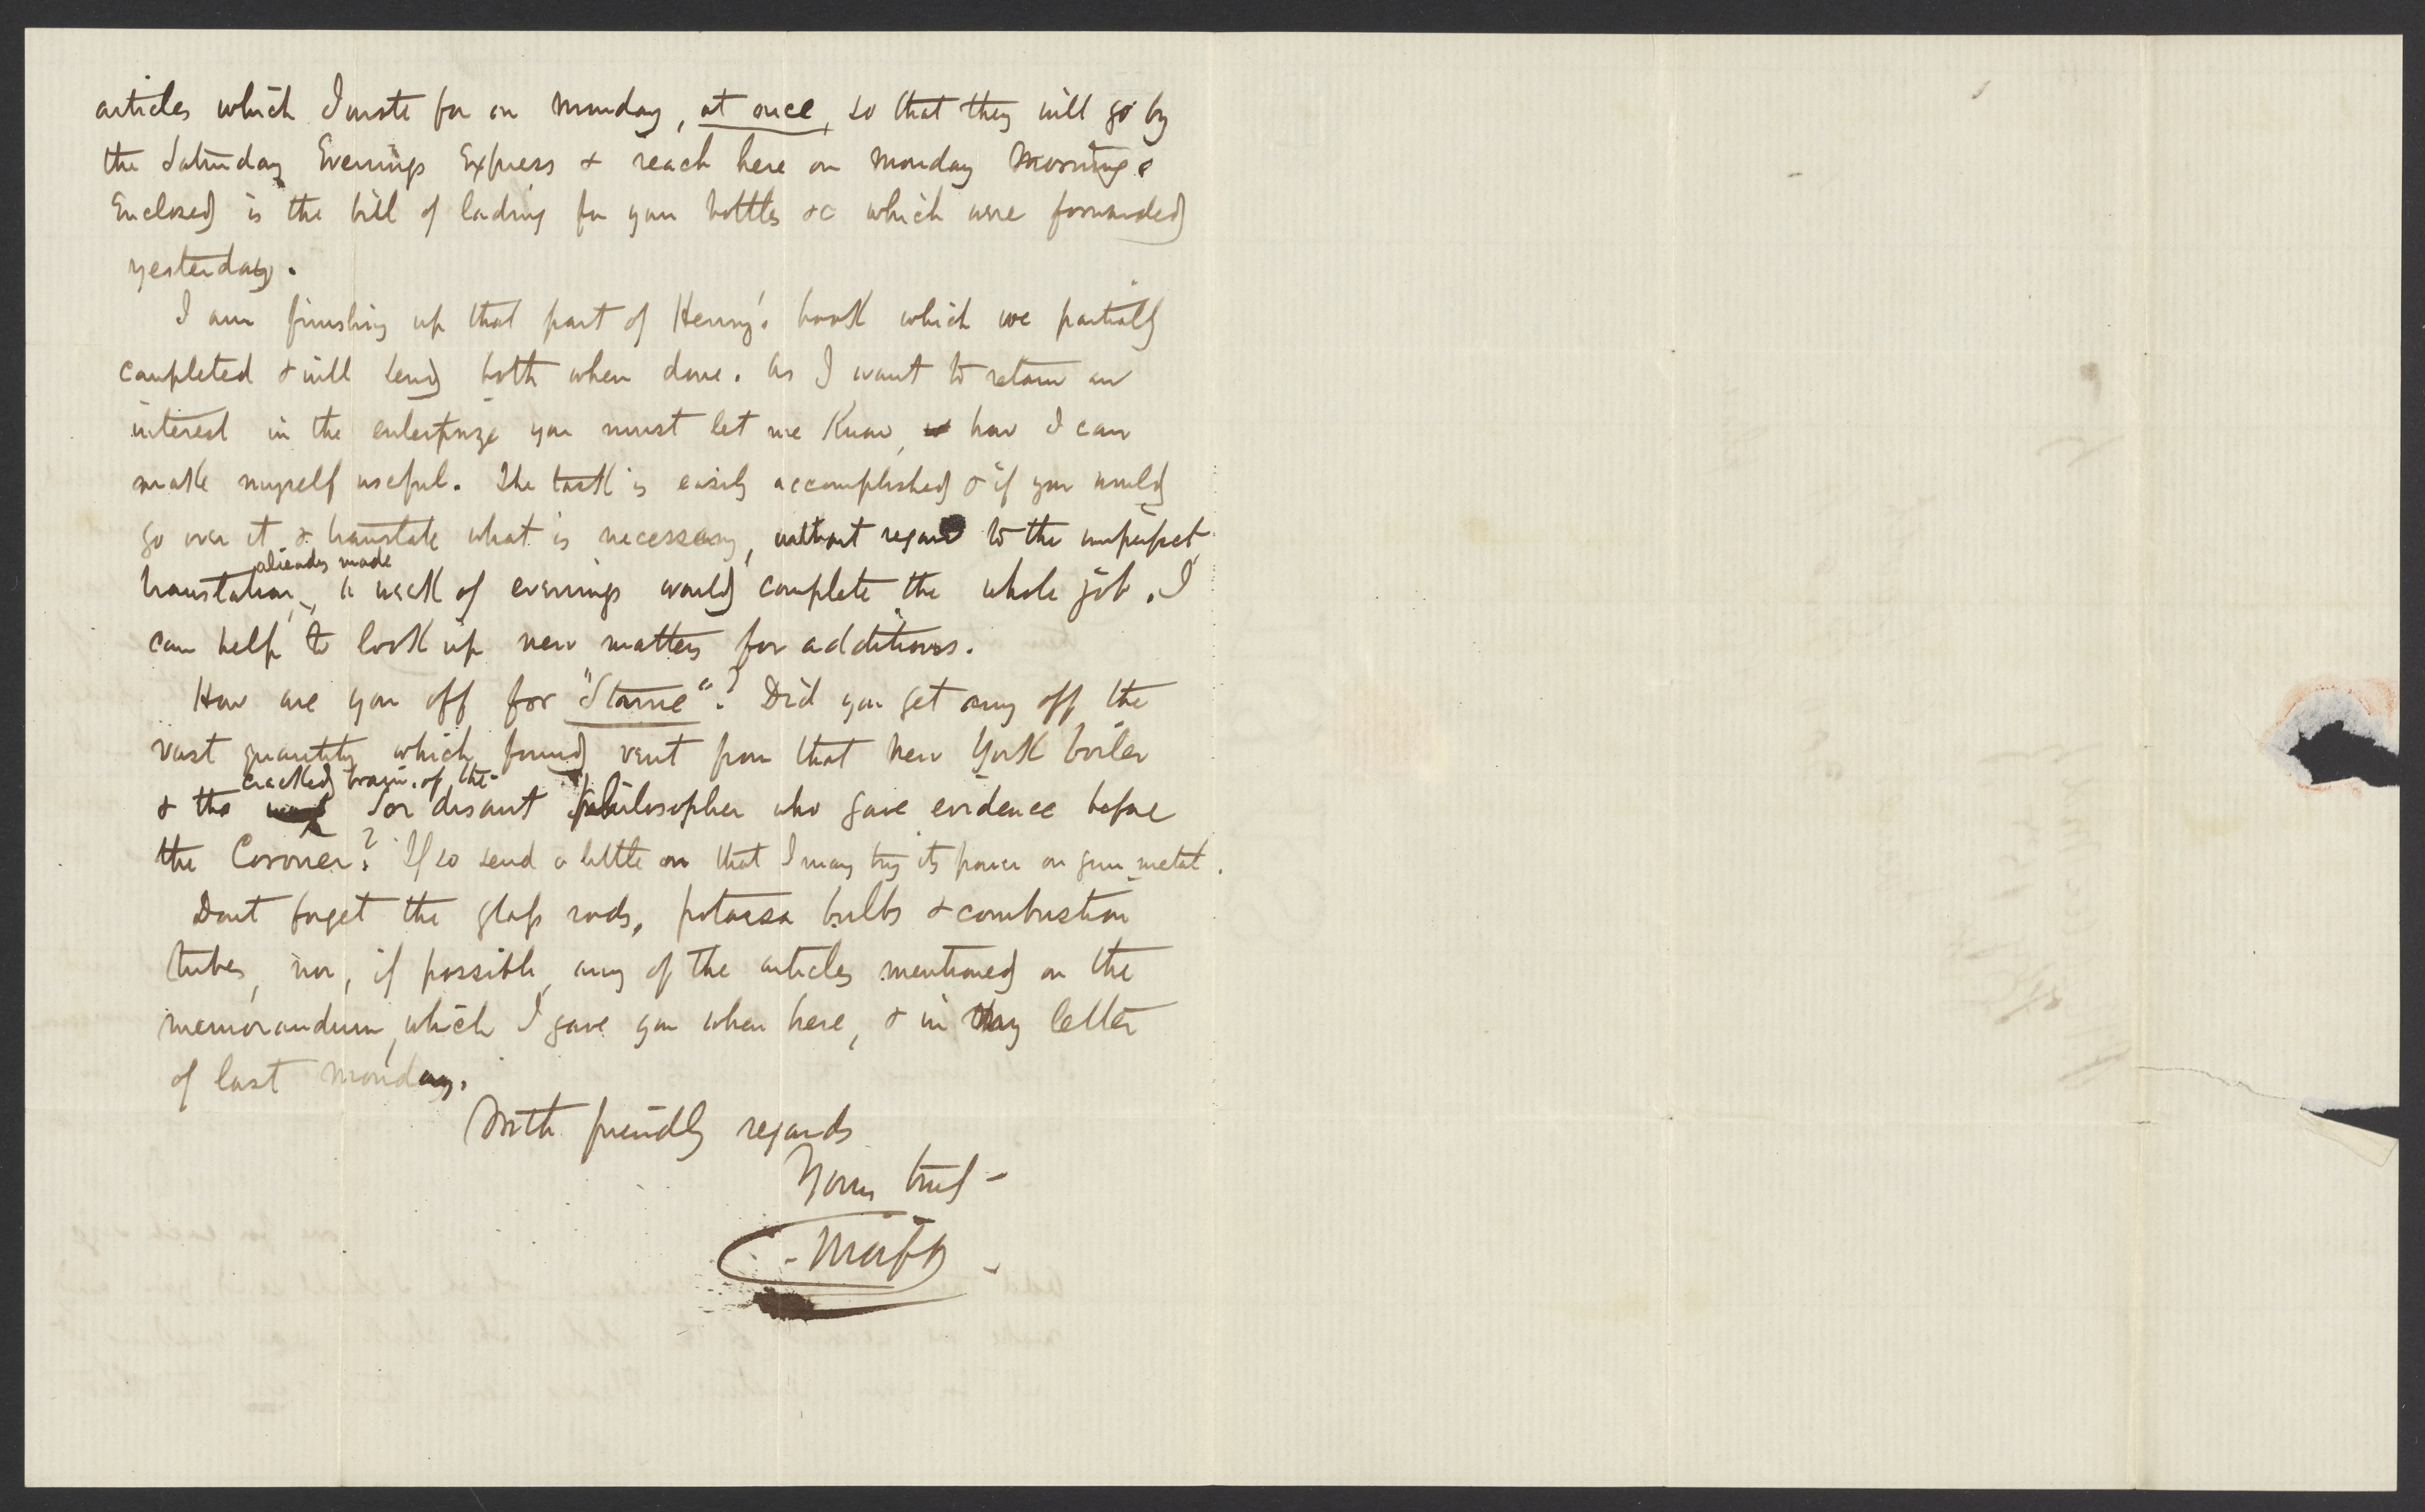 articles which I wrote for on Monday, at once, so that they will go by
the Saturday Evenings Express & reach here on Monday Morning.
Enclosed is the bill of lading for your bottles &c which were forwarded
yesterday.
I am finishing up that part of Henry's book which we partially
completed & will send both when done. As I want to retain an
interest in the enterprize you must let me know, how I can
make myself useful. The task is easily accomplished & if you would
go over it & translate what is necessary, without regard to the imperfect
already made
translation, a week of evenings would complete the whole job. I
can help to look up new matters for additions.
How are you off for "Stame"? Did you get any off the
vast quantity which found vent from that New York boiler
cracked brain of the
& the Soi disant philosopher who gave evidence before
the Coroner? If so send a little on that I may try its power on gun metal.
Dont forget the glass rods, potassa bulbs & combustion
tubes, nor, if possible, any of the articles mentioned on the
memorandum, which I gave you when here, & in my letter
of last Monday.
With friendly regards
Yours truly
C. Morfit